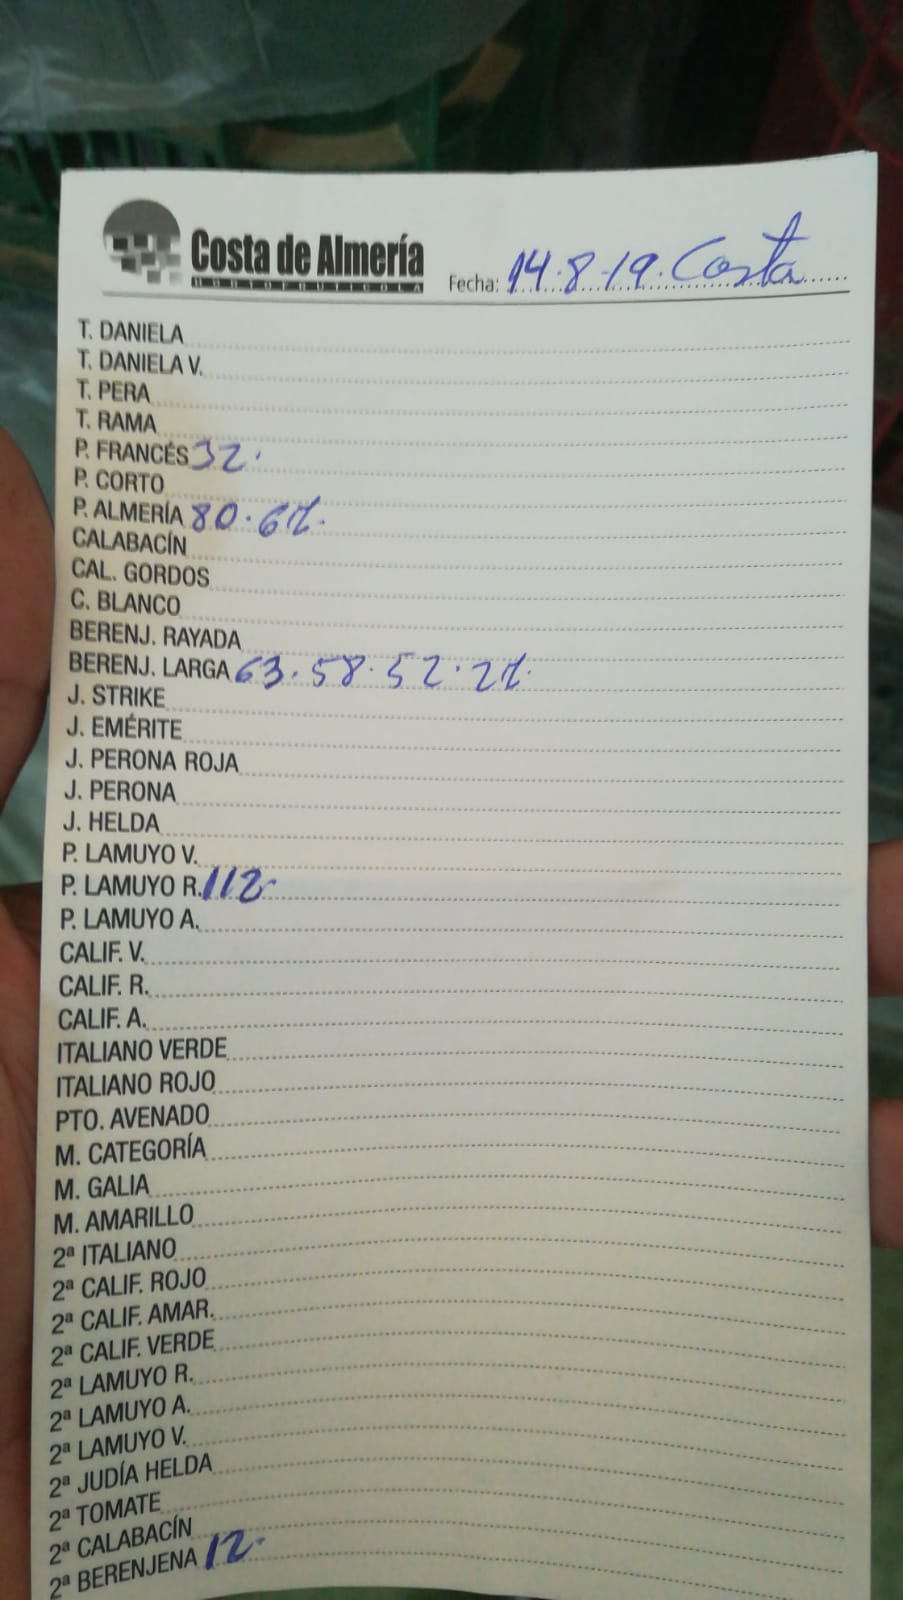 Costa de Almería
HORTOFRUTÍCOLA
Fecha: 14.8.19. Costa
T. DANIELA
T. DANIELA V.
T. PERA
T. RAMA
P. FRANCÉS 32.
P. CORTO
P. ALMERÍA 80.
CALABACÍN
CAL. GORDOS
C. BLANCO
BERENJ. RAYADA
BERENJ. LARGA 63.58.52.
J. STRIKE
J. EMÉRITE
J. PERONA ROJA
J. PERONA
J. HELDA
P. LAMUYO V.
P. LAMUYO R. 112.
P. LAMUYO A.
CALIF. V.
CALIF. R.
CALIF. A.
ITALIANO VERDE
ITALIANO ROJO
PTO. AVENADO
M. CATEGORÍA
M. GALIA
M. AMARILLO
2ª ITALIANO
2ª CALIF. ROJO
2ª CALIF. AMAR.
2ª CALIF. VERDE
2ª LAMUYO R.
2ª LAMUYO A.
2ª LAMUYO V.
2ª JUDÍA HELDA
2ª TOMATE
2ª CALABACÍN
2ª BERENJENA 12.